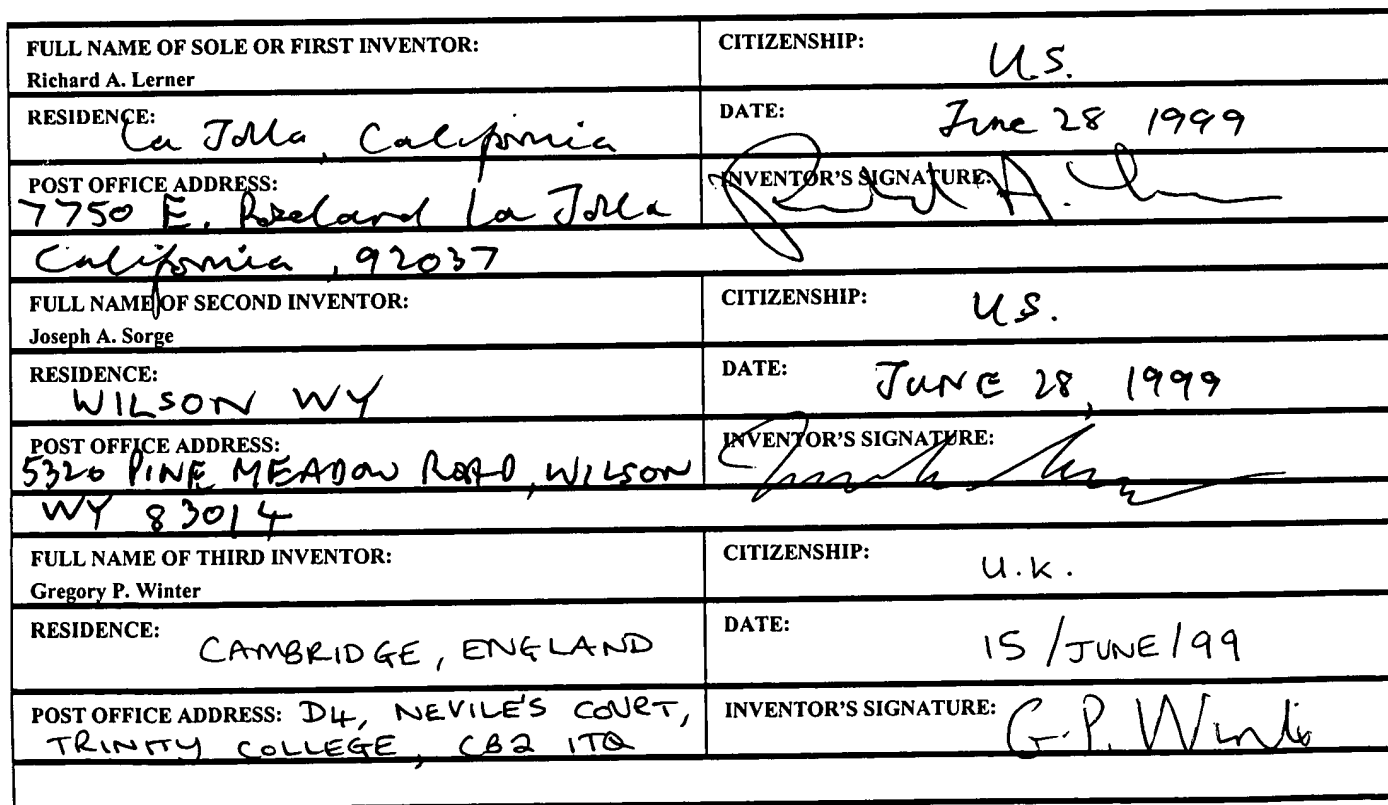 FULL NAME OF SOLE OR FIRST INVENTOR:
Richard A. Lerner
CITIZENSHIP: U.S.
RESIDENCE: La Jolla, California
DATE: June 28 1999
POST OFFICE ADDRESS:
7750 E. Roseland La Jolla
California, 92037
INVENTOR'S SIGNATURE: Richard A. Lerner
FULL NAME OF SECOND INVENTOR:
Joseph A. Sorge
CITIZENSHIP: U.S.
RESIDENCE:
WILSON WY
DATE: JUNE 28, 1999
POST OFFICE ADDRESS:
5320 PINE MEADOW ROAD, WILSON
WY 83014
INVENTOR'S SIGNATURE:
FULL NAME OF THIRD INVENTOR:
Gregory P. Winter
CITIZENSHIP: U.K.
RESIDENCE: CAMBRIDGE, ENGLAND
DATE: 15/JUNE/99
POST OFFICE ADDRESS: D4, NEVILE'S COURT,
TRINITY COLLEGE, CB2 1TQ
INVENTOR'S SIGNATURE: G.P. Winter